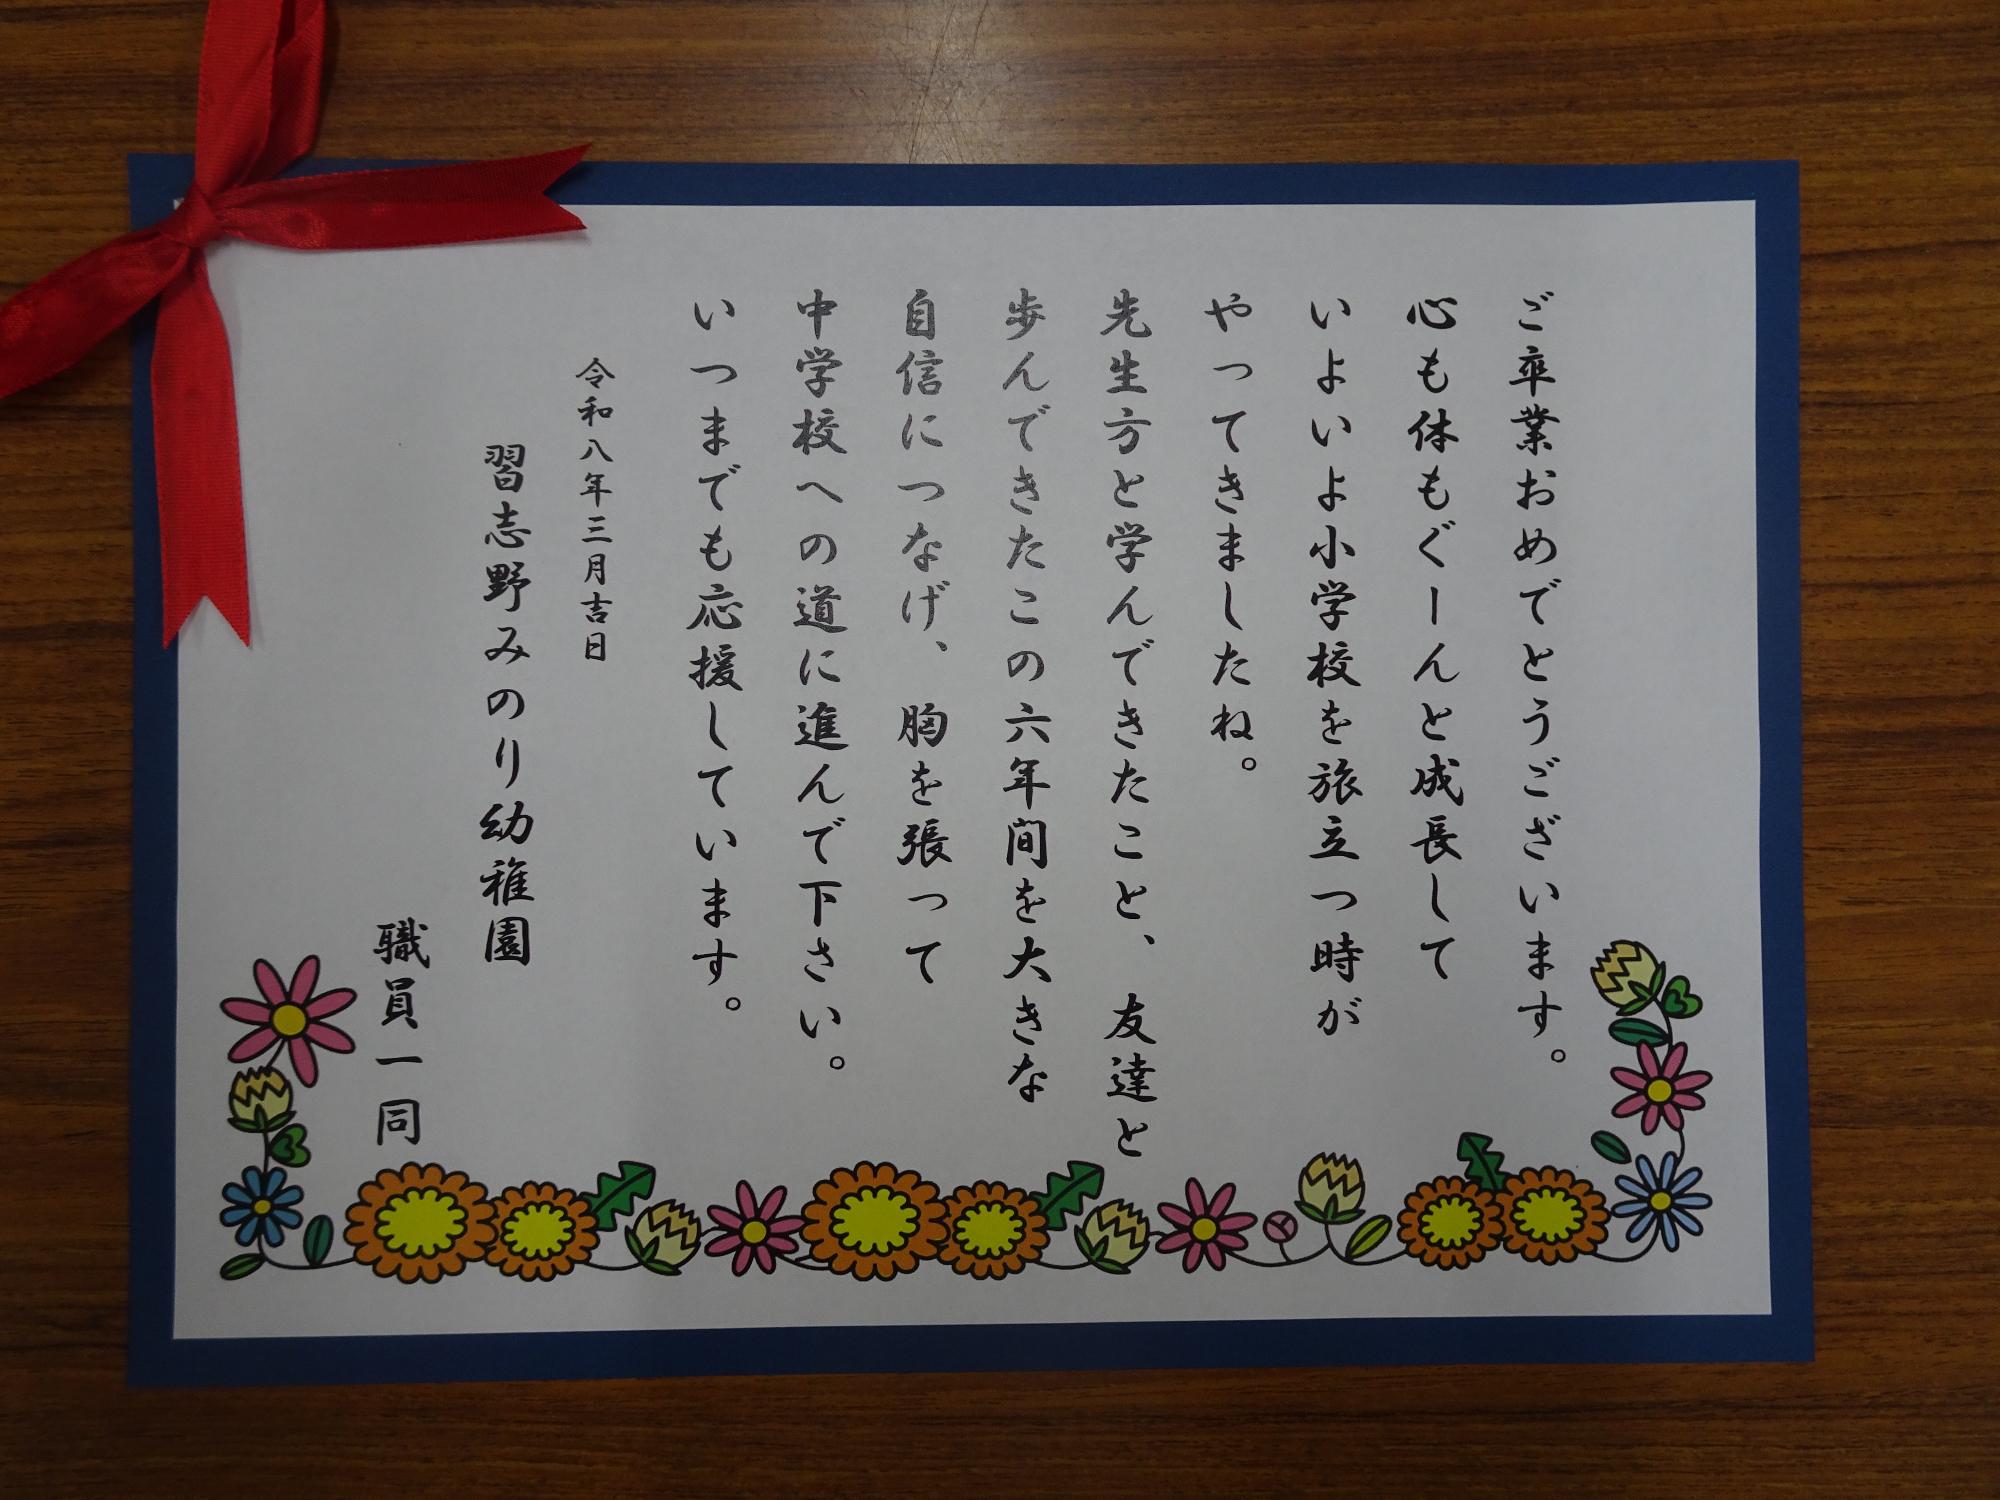 ご卒業おめでとうございます。
心も体もぐーんと成長して
いよいよ小学校を旅立つ時が
やってきましたね。
先生方と学んできたこと、友達と
歩んできたこの六年間を大きな
自信につなげ、胸を張って
中学校への道に進んで下さい。
いつまでも応援しています。
令和八年三月吉日
習志野みのり幼稚園
職員一同